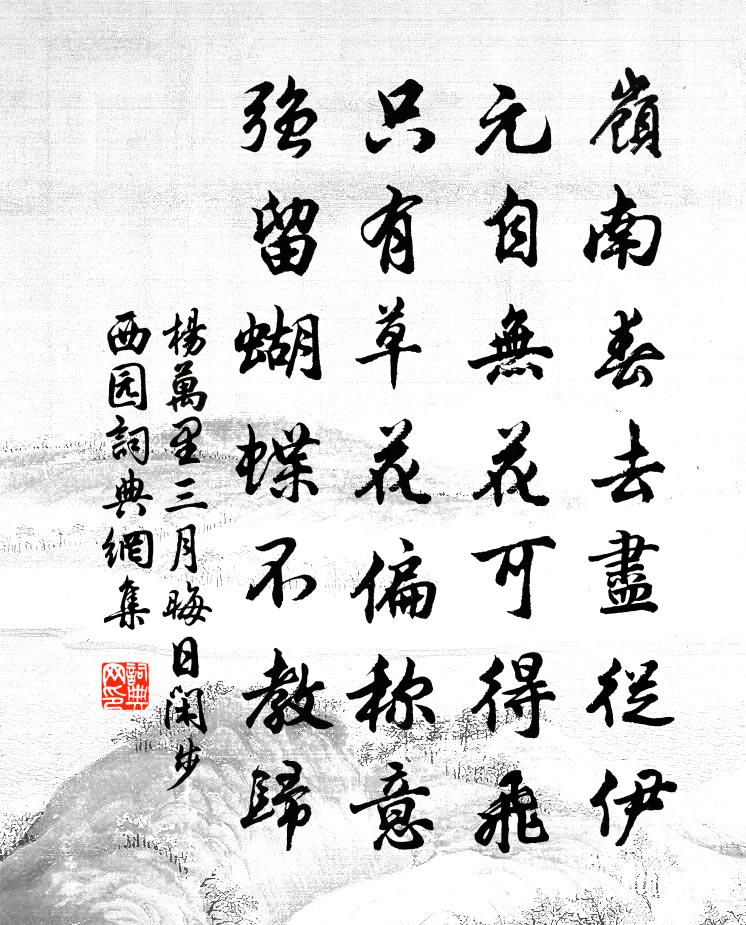 嶺南春去盡從伊
元自無花可得飛
只有草花偏称意
強留蝴蝶不教歸
楊萬里三月晦日閑步
西园詞典網集
詞典
网印